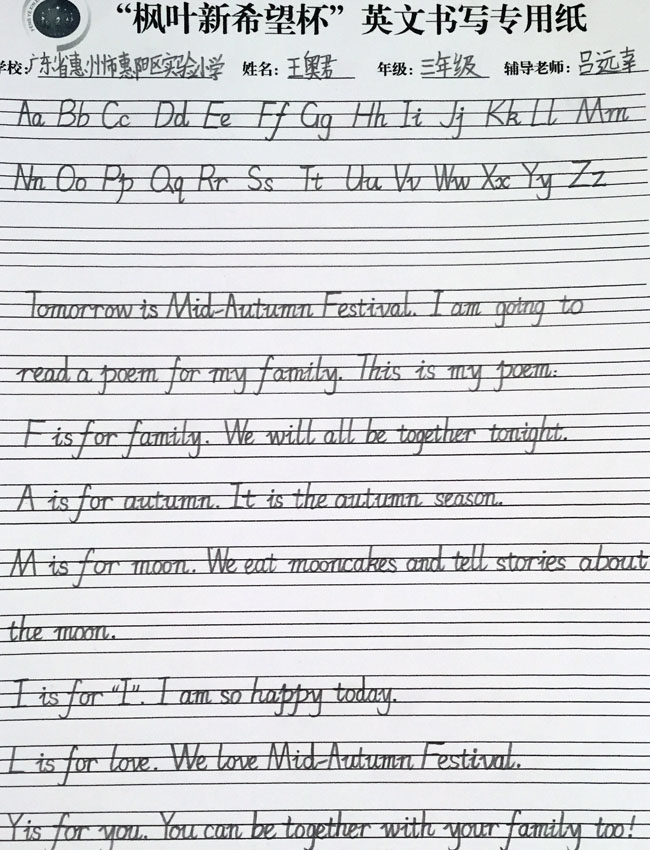 “枫叶新希望杯”英文书写专用纸
学校:广东省惠州市惠阳区实验小学 姓名:王奥若 年级:三年级 辅导老师:吕远幸
Aa Bb Cc Dd Ee Ff Gg Hh Ii Jj Kk Ll Mm
Nn Oo Pp Qq Rr Ss Tt Uu Vv Ww Xx Yy Zz
Tomorrow is Mid-Autumn Festival. I am going to
read a poem for my family. This is my poem:
F is for family. We will all be together tonight.
A is for autumn. It is the autumn season.
M is for moon. We eat mooncakes and tell stories about
the moon.
I is for "I". I am so happy today.
L is for love. We love Mid-Autumn Festival.
Y is for you. You can be together with your family too!